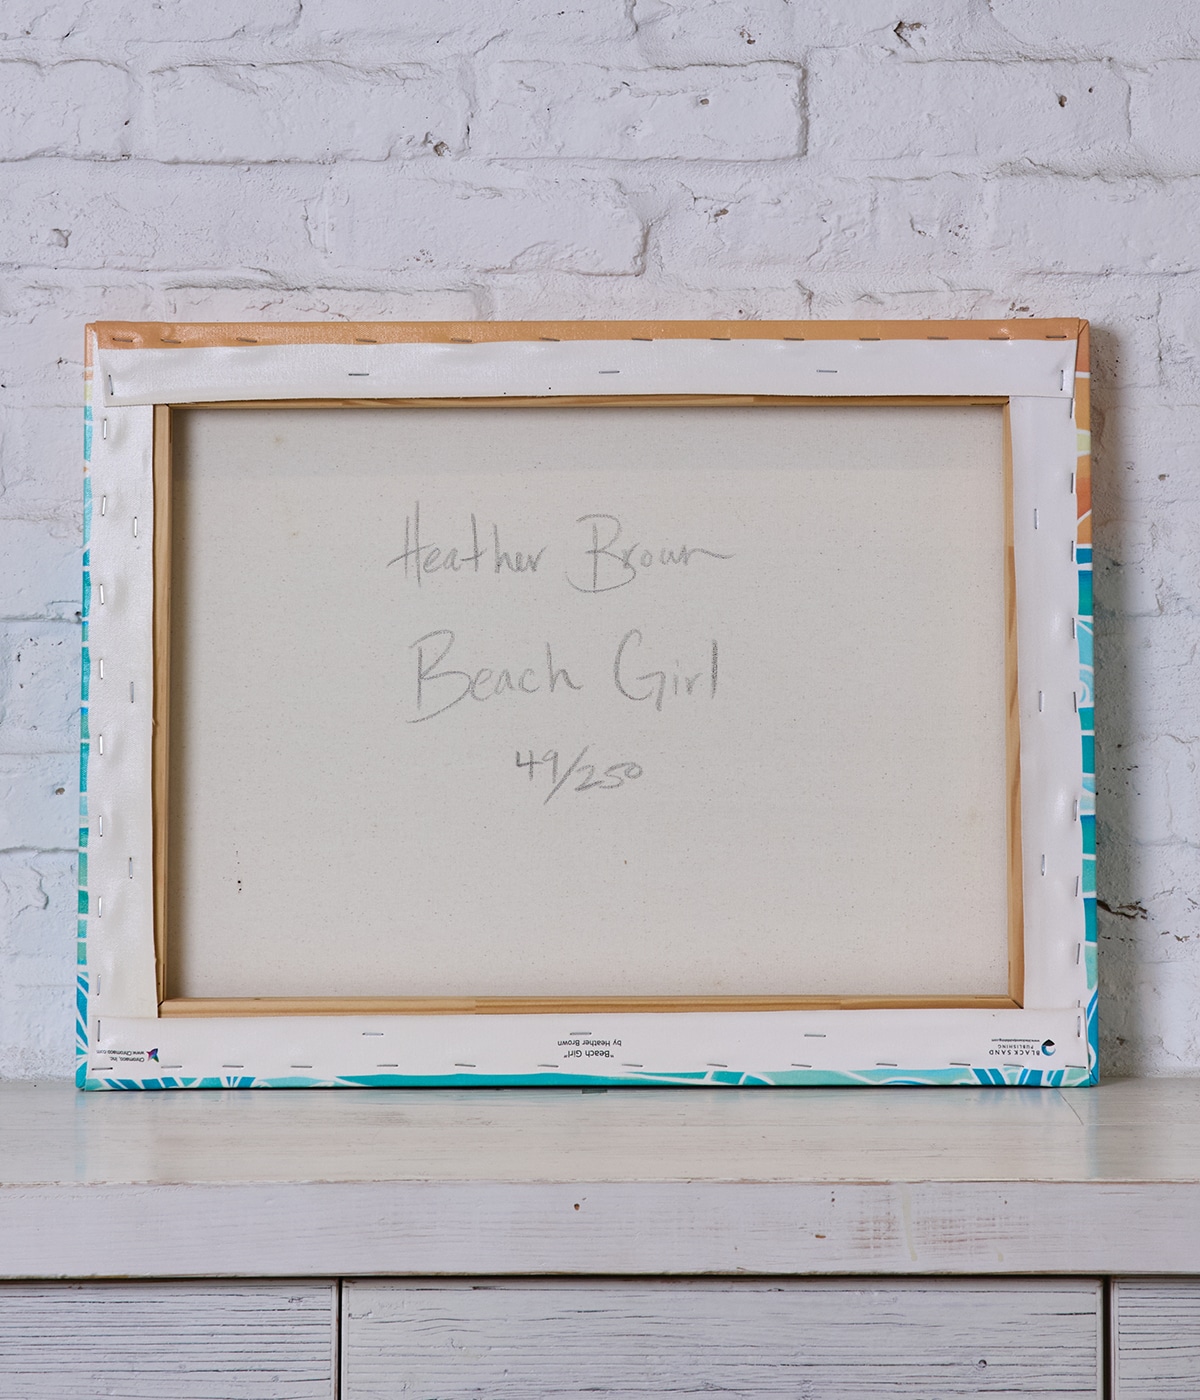 Heather Brown
Beach Girl
49/250
Chromaos, Inc.
www.Chromaos.com
"Beach Girl"
by Heather Brown
BLACK SAND
PUBLISHING